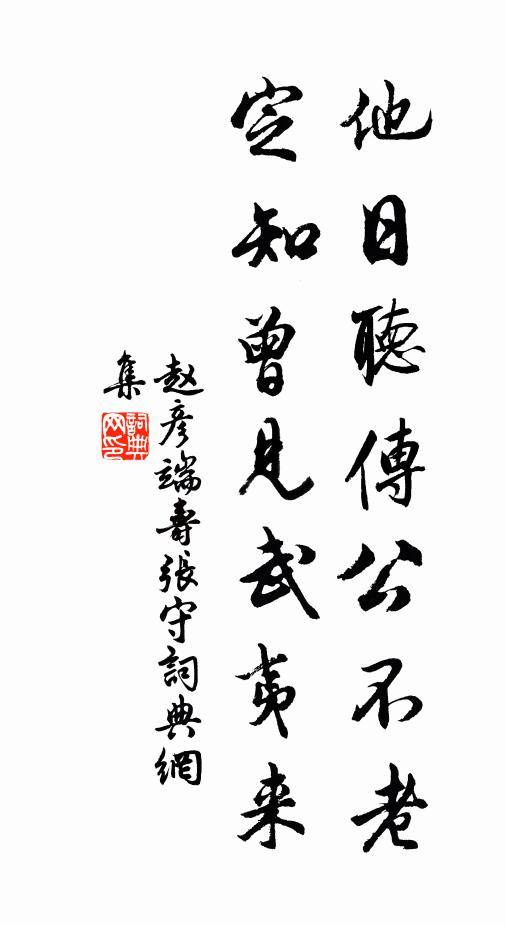 他日聽傳公不老
定知曾見武夷来
赵彦端壽張守詞典網
集
詞典
网印